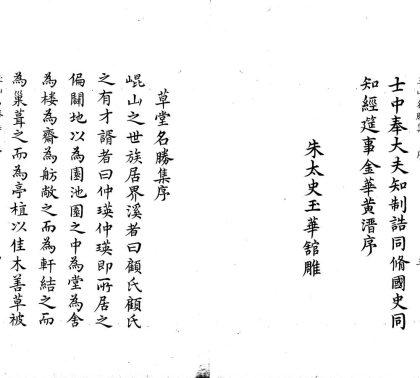 士中奉大夫知制誥同脩國史同
知經筵事金華黃溍序
朱太史玉華館雕
草堂名勝集序
崐山之世族居界溪者曰顧氏顧氏
之有才諝者曰仲瑛仲瑛即所居之
偏闢地以為園池園之中為堂為舍
為楼為齋為舫敞之而為軒結之而
為巢葺之而為亭植以佳木善草被